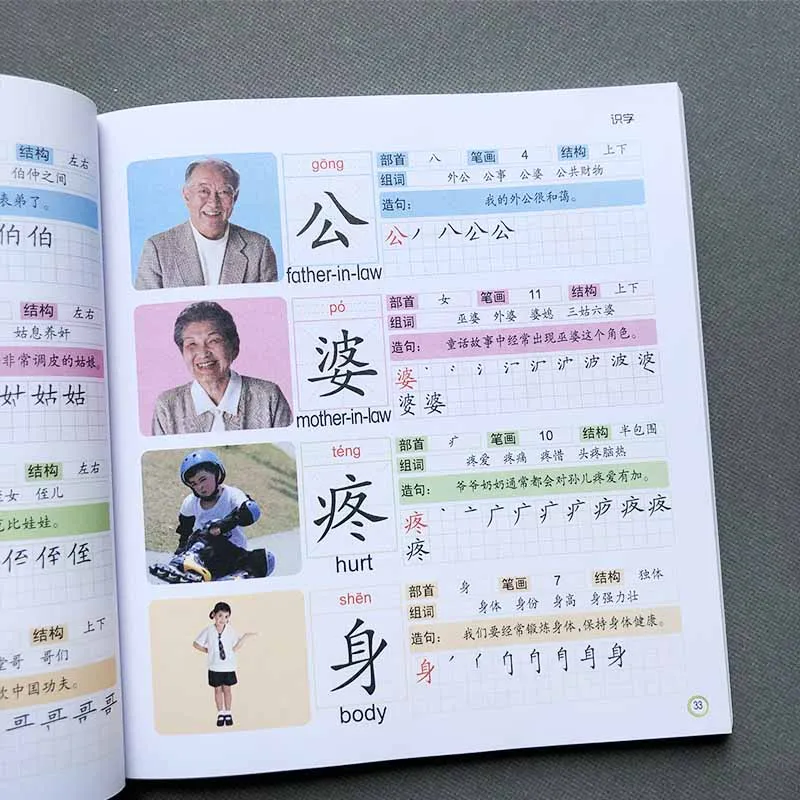 结构 左右
伯仲之间
表弟了。
伯 伯
结构 左右
姑息养奸
非常调皮的姑娘。
姑 姑
结构 左右
侄女 侄儿
芭比娃娃。
侄 侄
结构 上下
堂哥 哥们
欢中国功夫。
哥
识字
gōng
公
father-in-law
部首 八 笔画 4 结构 上下
组词 外公 公事 公婆 公共财物
造句： 我的外公很和蔼。
公 丿 八 公 公
pó
婆
mother-in-law
部首 女 笔画 11 结构 上下
组词 巫婆 外婆 婆媳 三姑六婆
造句： 童话故事中经常出现巫婆这个角色。
婆 丶 冫 氵 沪 波 波
婆 婆
téng
疼
hurt
部首 疒 笔画 10 结构 半包围
组词 疼爱 疼痛 疼惜 头疼脑热
造句： 爷爷奶奶通常都会对孙儿疼爱有加。
疼 丶 亠 广 疒 疼
疼
shēn
身
body
部首 身 笔画 7 结构 独体
组词 身体 身份 身高 身强力壮
造句： 我们要经常锻炼身体，保持身体健康。
身 丿 亻 身 身
33